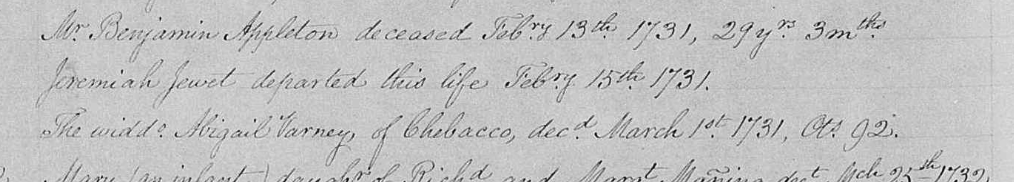 Mr. Benjamin Appleton deceased Febry 13th 1731, 29 yrs 3 mths
Jeremiah Jewet departed this life Febry 15th 1731.
The widdo. Abigail Varney, of Chebacco, decd March 1st 1731, Ots 92.
Mary (an infant) daughr of Richd and Margt Maning dect Mch 25th 1732